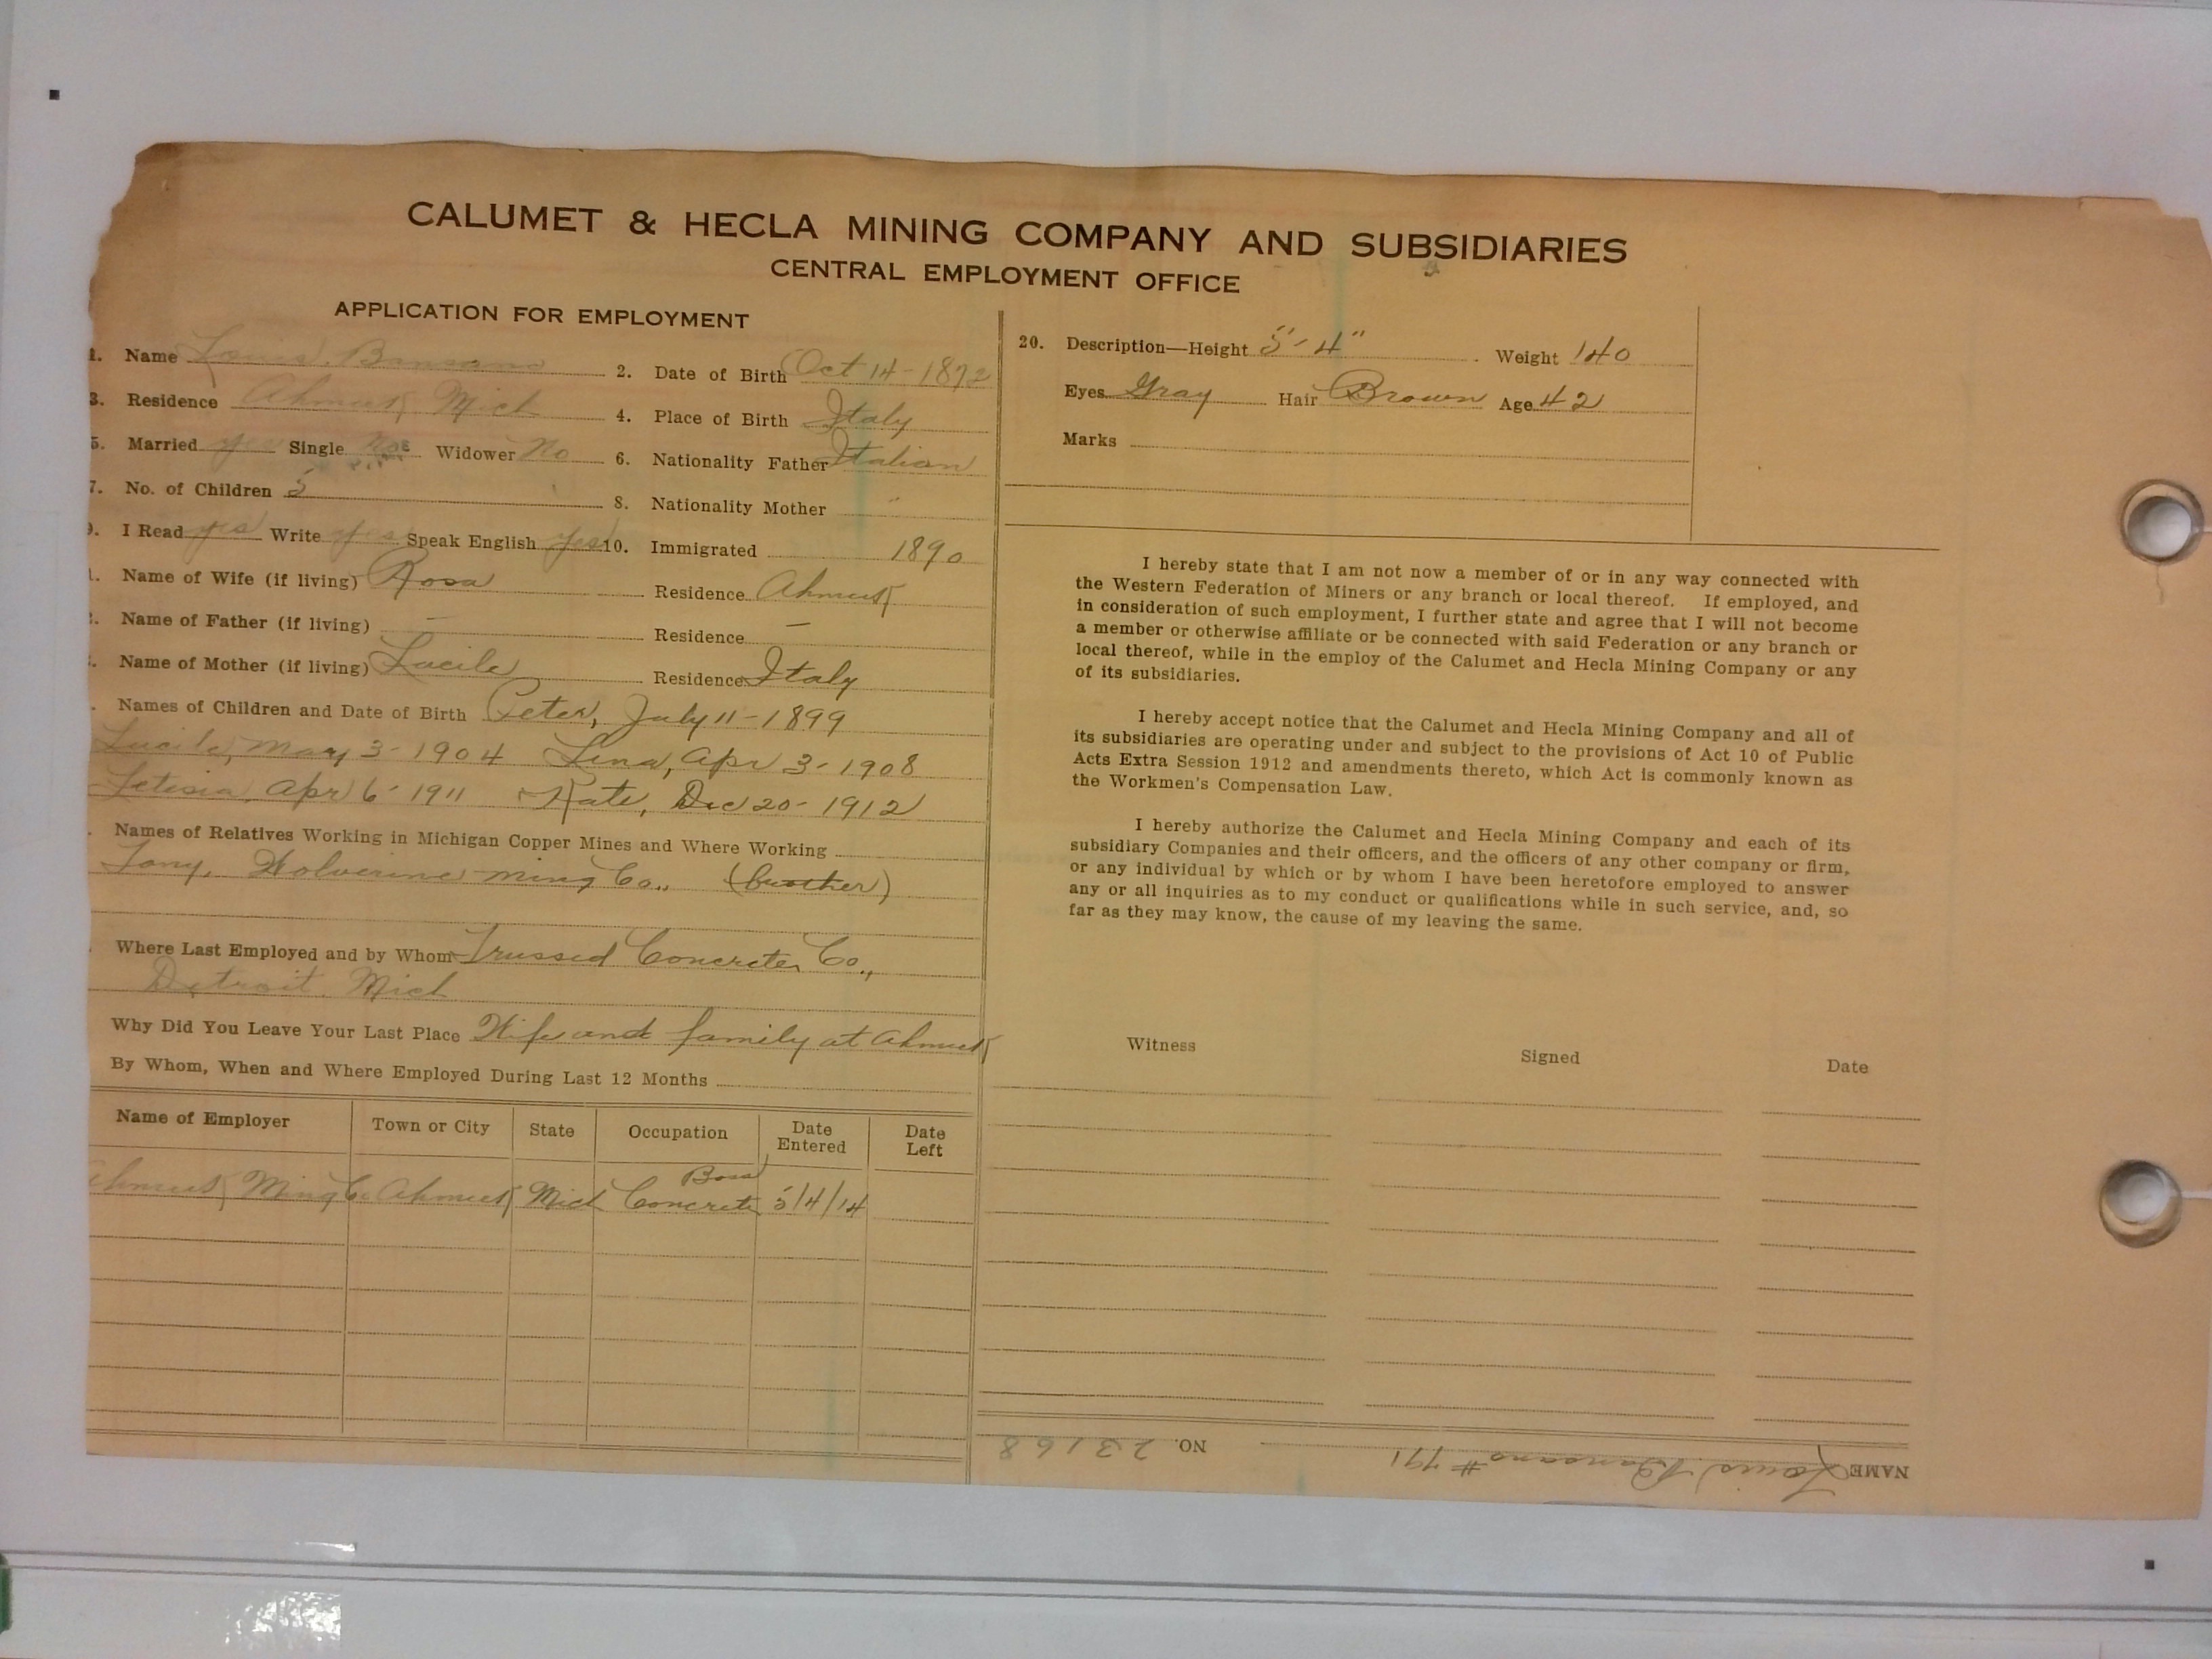 CALUMET & HECLA MINING COMPANY AND SUBSIDIARIES
CENTRAL EMPLOYMENT OFFICE
APPLICATION FOR EMPLOYMENT
1. Name Louis Bansano 2. Date of Birth Oct 14-1872
3. Residence Ahmeek Mich 4. Place of Birth Italy
5. Married yes Single Widower No 6. Nationality Father Italian
7. No. of Children 5 8. Nationality Mother "
9. I Read yes Write yes Speak English yes 10. Immigrated 1890
1. Name of Wife (if living) Rosa Residence Ahmeek
Name of Father (if living) — Residence —
Name of Mother (if living) Lucile Residence Italy
Names of Children and Date of Birth Peter, July 11-1899
Lucile, May 3-1904 Lena, Apr 3-1908
Letisia, Apr 6-1911 Kate, Dec 20-1912
Names of Relatives Working in Michigan Copper Mines and Where Working
Tony, Wolverine Ming Co., (brother)
Where Last Employed and by Whom Trussed Concrete Co.,
Detroit Mich
Why Did You Leave Your Last Place Wife and family at Ahmeek
By Whom, When and Where Employed During Last 12 Months
Name of Employer Town or City State Occupation Date Entered Date Left
Ahmeek Ming Co Ahmeek Mich Concrete Boss 5/4/14
20. Description—Height 5'-4" Weight 140
Eyes Gray Hair Brown Age 42
Marks
I hereby state that I am not now a member of or in any way connected with
the Western Federation of Miners or any branch or local thereof. If employed, and
in consideration of such employment, I further state and agree that I will not become
a member or otherwise affiliate or be connected with said Federation or any branch or
local thereof, while in the employ of the Calumet and Hecla Mining Company or any
of its subsidiaries.
I hereby accept notice that the Calumet and Hecla Mining Company and all of
its subsidiaries are operating under and subject to the provisions of Act 10 of Public
Acts Extra Session 1912 and amendments thereto, which Act is commonly known as
the Workmen's Compensation Law.
I hereby authorize the Calumet and Hecla Mining Company and each of its
subsidiary Companies and their officers, and the officers of any other company or firm,
or any individual by which or by whom I have been heretofore employed to answer
any or all inquiries as to my conduct or qualifications while in such service, and, so
far as they may know, the cause of my leaving the same.
Witness Signed Date
NAME Louis Bansano # 791 NO. 23168